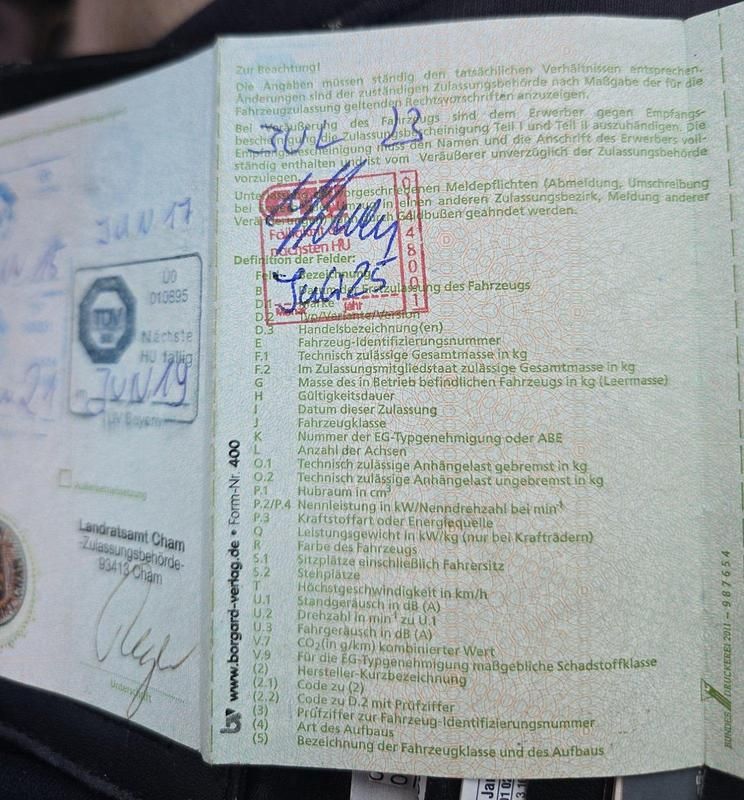 Zur Beachtung!
Die Angaben müssen ständig den tatsächlichen Verhältnissen entsprechen.
Änderungen sind der zuständigen Zulassungsbehörde nach Maßgabe der für die
Fahrzeugzulassung geltenden Rechtsvorschriften anzuzeigen.
Bei Veräußerung des Fahrzeugs sind dem Erwerber gegen Empfangs-
bescheinigung die Zulassungsbescheinigung Teil I und Teil II auszuhändigen. Die
Empfangsbescheinigung muss den Namen und die Anschrift des Erwerbers voll-
ständig enthalten und ist vom Veräußerer unverzüglich der Zulassungsbehörde
vorzulegen.
vorgeschriebenen Meldepflichten (Abmeldung, Umschreibung
bei in einen anderen Zulassungsbezirk, Meldung anderer
Geldbußen geahndet werden.
JUL 23
nächsten HU
Juli 25
Jahr
Definition der Felder:
Feld Bezeichnung
B Datum der Erstzulassung des Fahrzeugs
D.1 Marke
D.2 Typ/Variante/Version
D.3 Handelsbezeichnung(en)
E Fahrzeug-Identifizierungsnummer
F.1 Technisch zulässige Gesamtmasse in kg
F.2 Im Zulassungsmitgliedstaat zulässige Gesamtmasse in kg
G Masse des in Betrieb befindlichen Fahrzeugs in kg (Leermasse)
H Gültigkeitsdauer
I Datum dieser Zulassung
J Fahrzeugklasse
K Nummer der EG-Typgenehmigung oder ABE
L Anzahl der Achsen
O.1 Technisch zulässige Anhängelast gebremst in kg
O.2 Technisch zulässige Anhängelast ungebremst in kg
P.1 Hubraum in cm³
P.2/P.4 Nennleistung in kW/Nenndrehzahl bei min-1
P.3 Kraftstoffart oder Energiequelle
Q Leistungsgewicht in kW/kg (nur bei Krafträdern)
R Farbe des Fahrzeugs
S.1 Sitzplätze einschließlich Fahrersitz
S.2 Stehplätze
T Höchstgeschwindigkeit in km/h
U.1 Standgeräusch in dB (A)
U.2 Drehzahl in min-1 zu U.1
U.3 Fahrgeräusch in dB (A)
V.7 CO2 (in g/km) kombinierter Wert
V.9 Für die EG-Typgenehmigung maßgebliche Schadstoffklasse
(2) Hersteller-Kurzbezeichnung
(2.1) Code zu (2)
(2.2) Code zu D.2 mit Prüfziffer
(3) Prüfziffer zur Fahrzeug-Identifizierungsnummer
(4) Art des Aufbaus
(5) Bezeichnung der Fahrzeugklasse und des Aufbaus
www.borgard-verlag.de • Form-Nr. 400
JUN 17
ÜO
010895
TÜV
Nächste
HU fällig
JUN 19
TÜV Bayern
Landratsamt Cham
-Zulassungsbehörde-
93413 Cham
Unterschrift
BUNDESDRUCKEREI 2011 – 987654